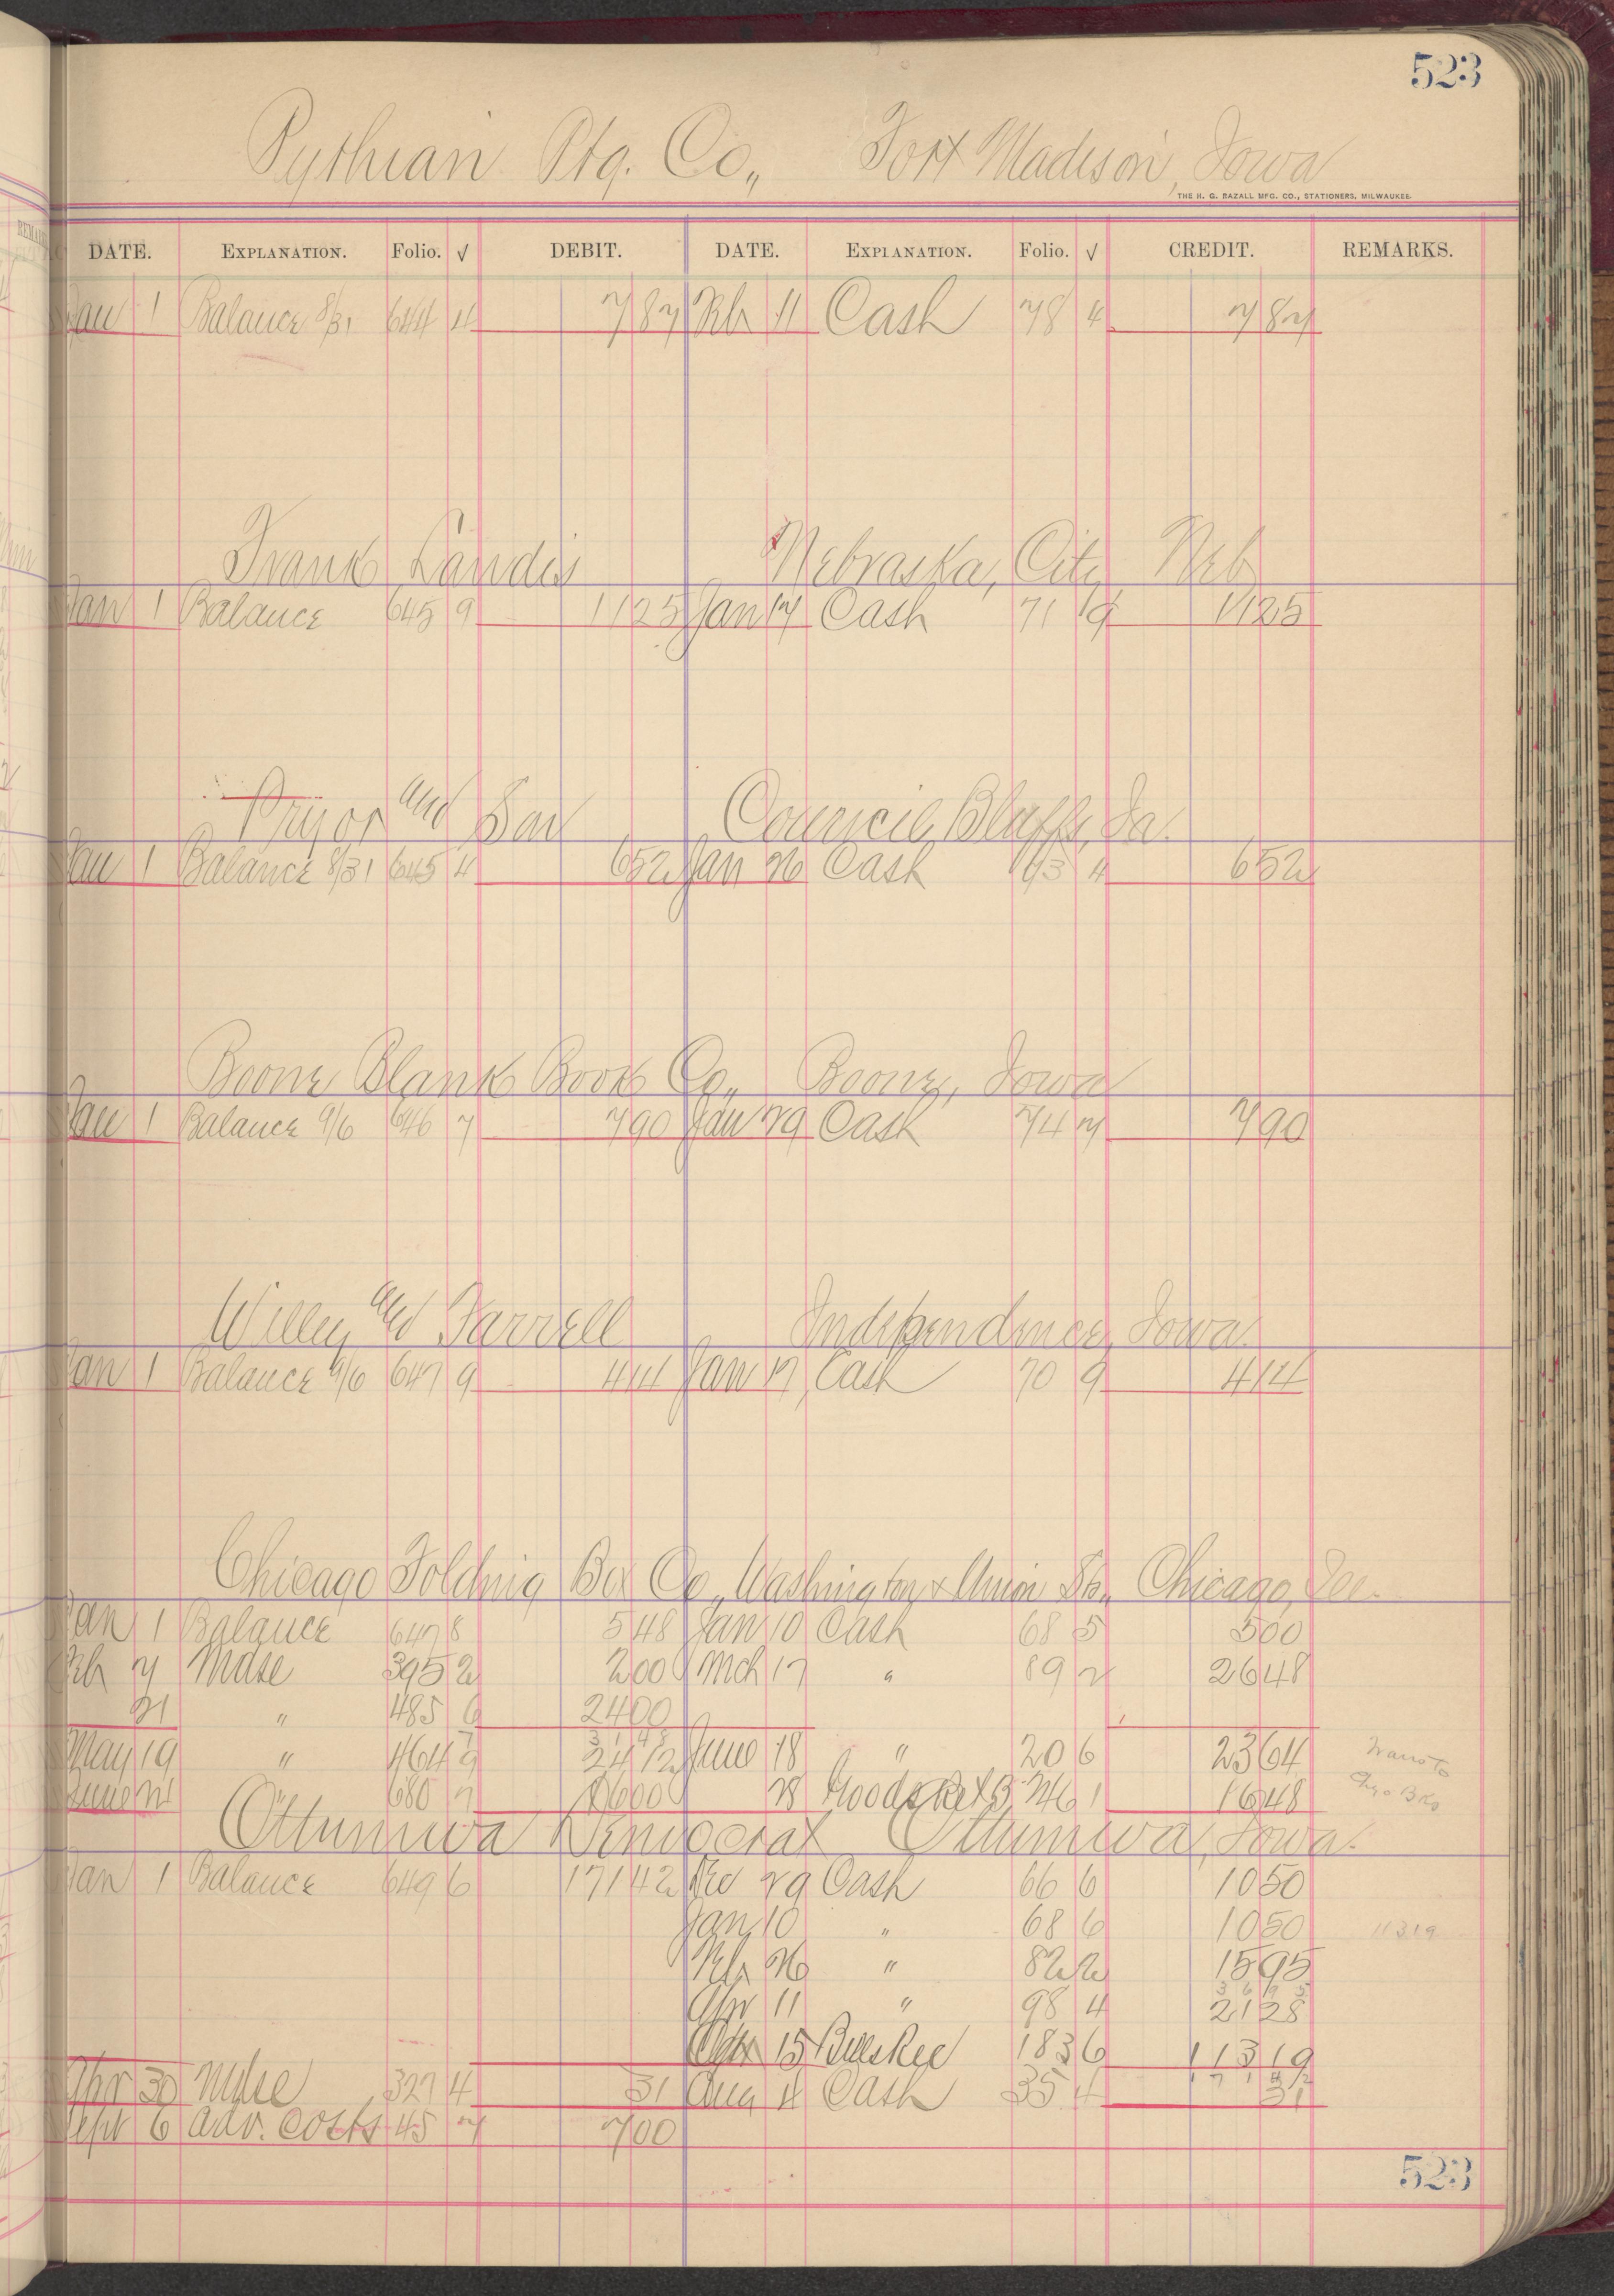 523
Pythian Ptg. Co., Fort Madison, Iowa
THE H. G. RAZALL MFG. CO., STATIONERS, MILWAUKEE.
DATE. EXPLANATION. Folio. √ DEBIT. DATE. EXPLANATION. Folio. √ CREDIT. REMARKS.
Jan 1 Balance 8/31 644 4 7 87 Feb 11 Cash 78 4 7 87
Frank Landis Nebraska, City Neb
Jan 1 Balance 645 9 11 25 Jan 17 Cash 71 9 11 25
Pryor and Son Council Bluffs, Ia.
Jan 1 Balance 8/31 645 4 6 52 Jan 26 Cash 73 4 6 52
Boone Blank Book Co., Boone, Iowa
Jan 1 Balance 9/6 646 7 7 90 Jan 29 Cash 74 7 7 90
Willey and Farrell Independence, Iowa.
Jan 1 Balance 9/6 647 9 4 14 Jan 17 Cash 70 9 4 14
Chicago Folding Box Co., Washington & Union Sts., Chicago, Ill.
Jan 1 Balance 647 8 5 48 Jan 10 Cash 68 5 5 00
Feb 7 Mdse 395 2 2 00 Mch 17 " 89 2 26 48
21 " 485 6 24 00
May 19 " 464 9 24 12 June 18 " 20 6 23 64 Trans to
June 21 " 680 7 16 00 28 Goods Ret'd 3 46 1 16 48 Chgo Bks
Ottumwa Democrat Ottumwa, Iowa.
Jan 1 Balance 649 6 171 42 Dec 29 Cash 66 6 10 50
Jan 10 " 68 6 10 50 113 19
Feb 26 " 82 2 15 95
Apr 11 " 98 4 21 28
Apr 15 Bills Rec 183 6 113 19
Apr 30 Mdse 327 4 31 Aug 4 Cash 35 4 31
Sept 6 adv. costs 45 7 7 00
523